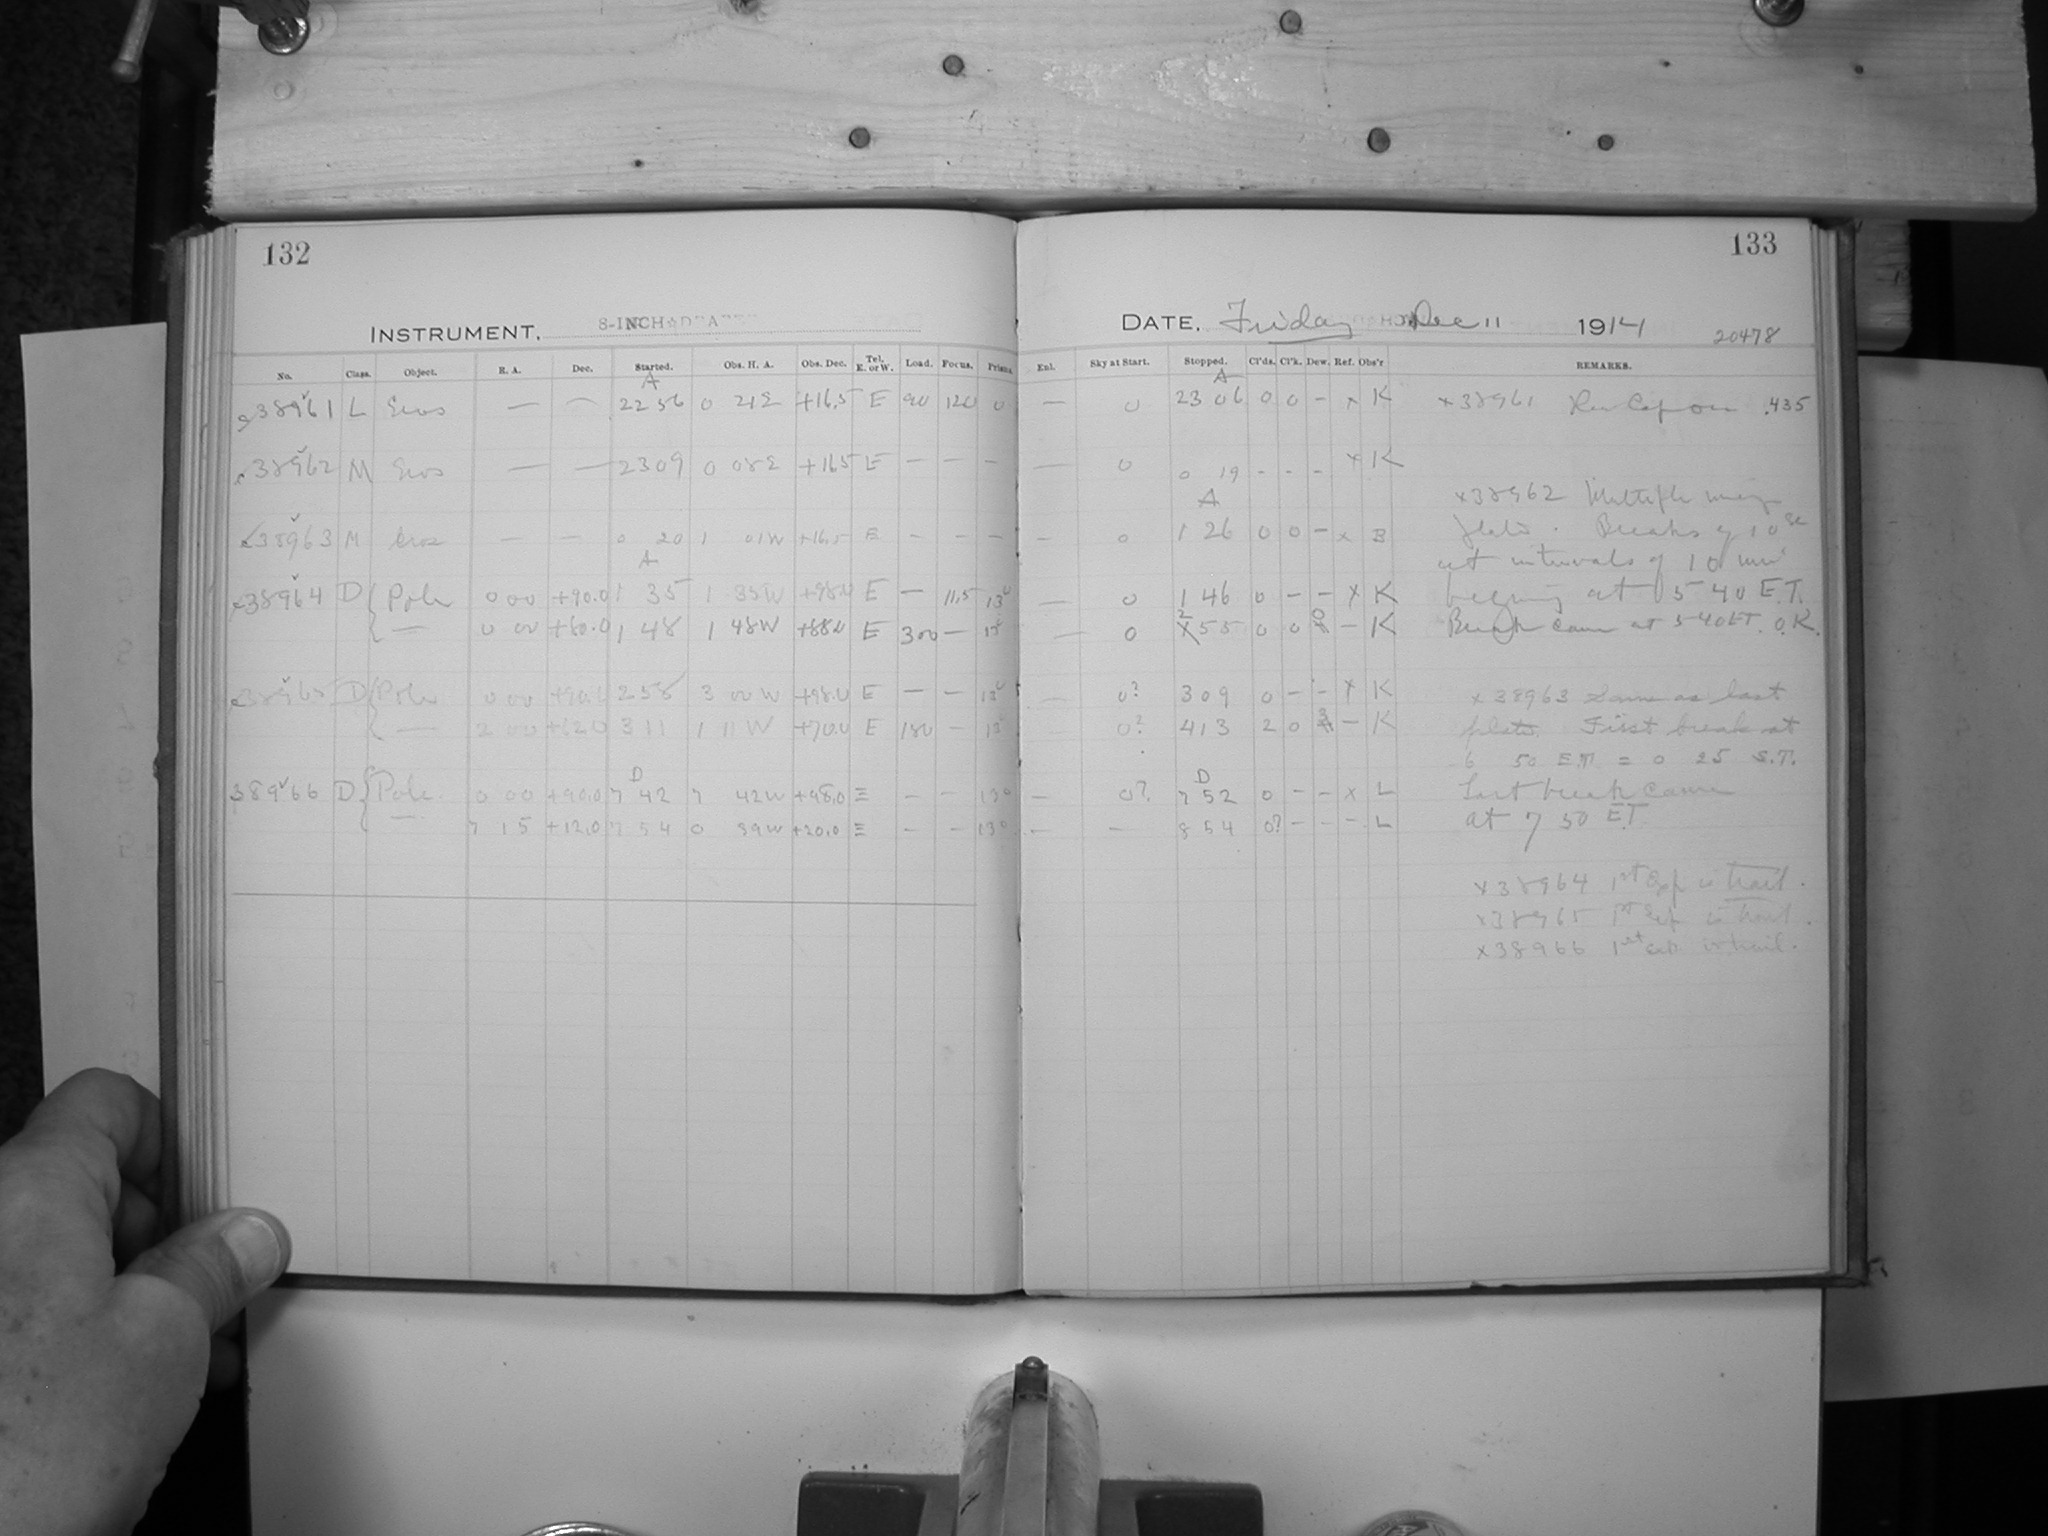 132
133
INSTRUMENT, 8-INCH
DATE, Friday Dec 11 1914 20478
No. Class. Object. R. A. Dec. Started. Obs. H. A. Obs. Dec. Tel. E. or W. Load. Focus. Prism. Enl. Sky at Start. Stopped. Cl'ds. Cl'k. Dew. Ref. Obs'r REMARKS.
A A
x38961 L Eros — — 22 56 0 21E +16.5 E 90 120 0 — 0 23 06 0 0 - x K x38961 on .435
x38962 M Eros — — 23 09 0 08E +16.5 E — — — — 0 0 19 - - - x K
A x38962 Multiple
x38963 M Eros — — 0 20 1 01W +16.5 E - - - — 0 1 26 0 0 - x B plate. Breaks of 10 sec
A at intervals of 10 min
x38964 D Pole 0 00 +90.0 1 35 1 35W +98.0 E — 11.5 13° — 0 1 46 0 - - x K at 5 40 E.T.
— 0 00 +80.0 1 48 1 48W +88.0 E 300 — 13° — 0 2 55 0 0 0 - K Break came at 5 40 ET. O.K.
x38965 D Pole 0 00 +90.0 2 58 3 00W +98.0 E — — 13° — 0? 3 09 0 - - x K x38963 Same as last
— 2 00 +62.0 3 11 1 11W +70.0 E 180 — 13° — 0? 4 13 2 0 3 - K plate. First break at
6 50 E.T. = 0 25 S.T.
D D
38966 D Pole. 0 00 +90.0 7 42 7 42W +98.0 E — — 13° — 0? 7 52 0 - - x L Last break came
— 7 15 +12.0 7 54 0 39W +20.0 E — — 13° — — 8 54 0? - - - L at 7 50 E.T.
x38964 1st Exp is trail.
x38965 1st Exp is trail.
x38966 1st exp. is trail.